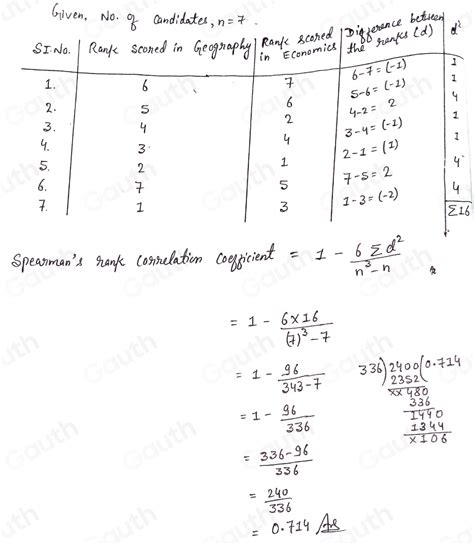 Given, No. of Candidates, n = 7.
SI.No. | Rank scored in Geography | Rank scored in Economics | Difference between the ranks (d) | d²
1. 6 7 6-7=(-1) 1
2. 5 6 5-6=(-1) 1
3. 4 2 4-2= 2 4
4. 3 4 3-4=(-1) 1
5. 2 1 2-1=(1) 1
6. 7 5 7-5=2 4
7. 1 3 1-3=(-2) 4
Σ16
Spearman's rank Correlation Coefficient = 1 - 6Σd² / n³-n
= 1 - 6×16 / (7)³-7
= 1 - 96 / 343-7
= 1 - 96 / 336
= 336-96 / 336
= 240 / 336
= 0.714 Ans
336)2400(0.714
2352
××480
336
1440
1344
×106
Gauth